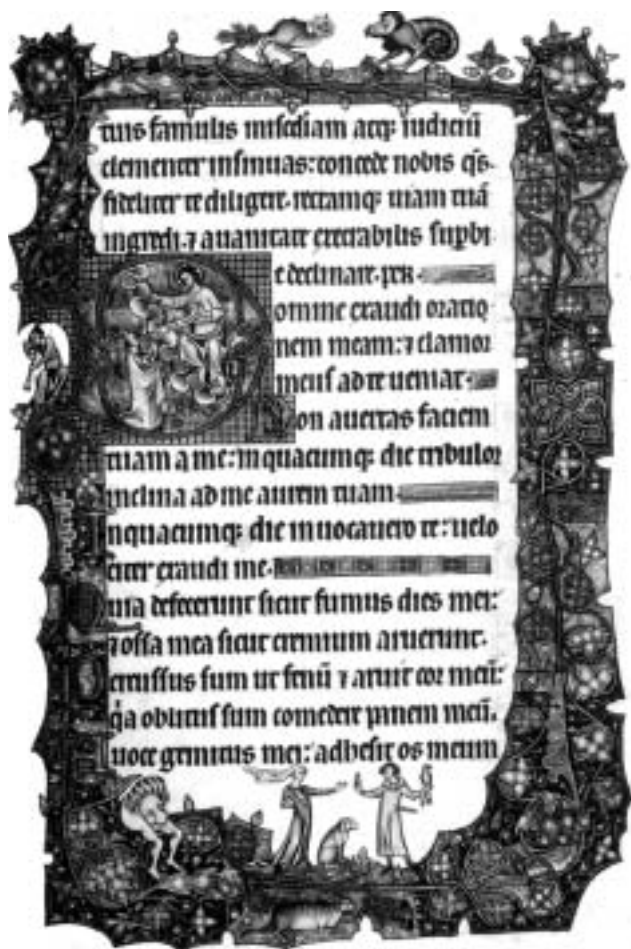 tuis famulis misc̄diam atq; iudiciū
clementer insinuas: concede nobis q̄s
fideliter te diligere. rectamq; uiam tuā
ingredi. ⁊ a uanitate execrabilis sup̄bi
e declinare. per.
Domine exaudi oratio
nem meam: ⁊ clamor
meus ad te ueniat.
on auertas faciem
tuam a me: in quacumq; die tribulor
inclina ad me aurem tuam.
n quacumq; die inuocauero te: uelo
citer exaudi me.
uia defecerunt sicut fumus dies mei:
⁊ ossa mea sicut cremium aruerunt.
ercussus sum ut fenū ⁊ aruit cor meū:
q̄a oblitus sum comedere panem meū.
uoce gemitus mei: adhesit os meum